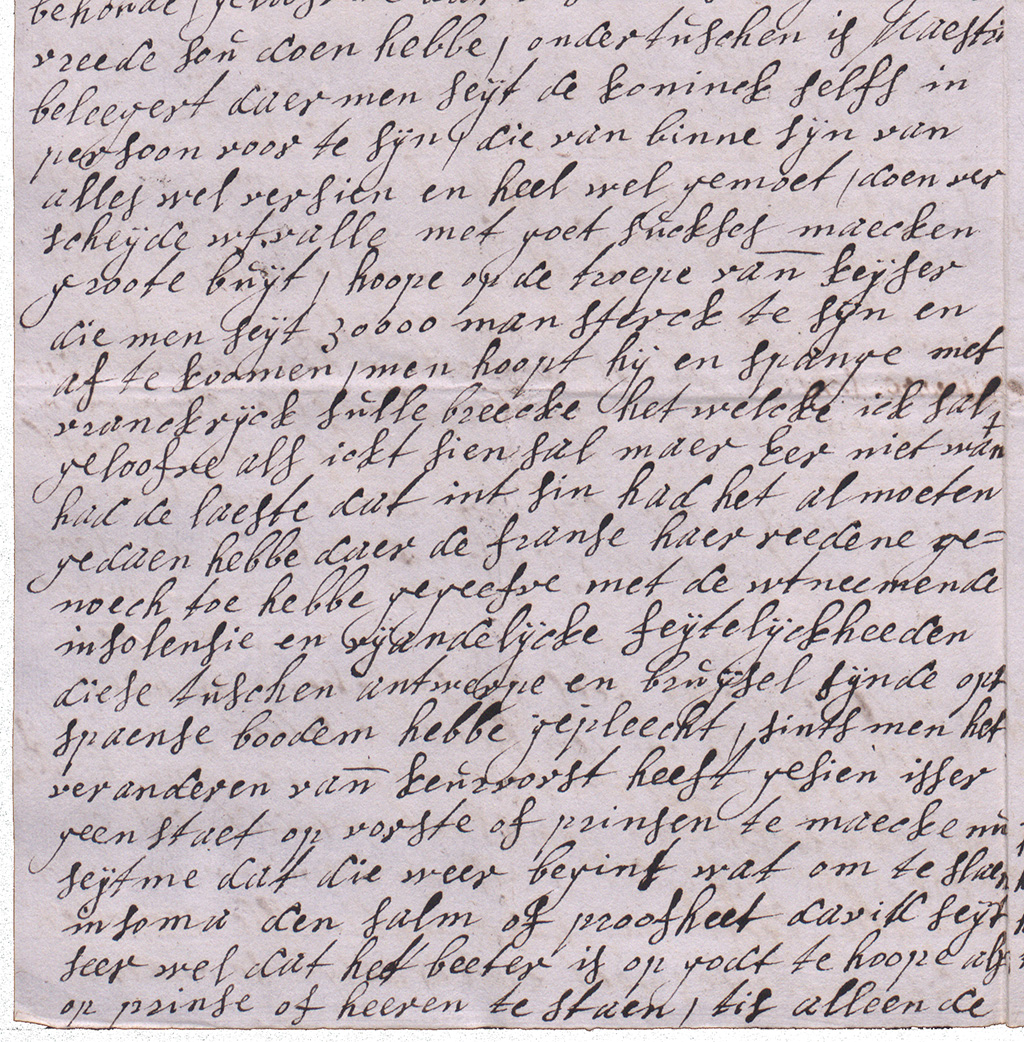 vreede soú doen hebbe, ondertúschen is Maestri
beleegert daer men seÿt de koninck selfs in
persoon voor te sÿn, die van binne sÿn van
alles wel versien en heel wel gemoet, doen ver
scheÿde wtvalle met goet súckses maecken
groote búÿt, hoope op de troepe van̄ keÿser
die men seÿt 30000 man sterck te sÿn en
af te koomen, men hoopt hÿ en spange met
vranckrÿck súlle breecke het welcke ick sal
geloofve als ickt sien sal maer eer niet wan
had de laeste dat int sin had het al moeten
gedaen hebbe daer de franse haer reedene ge=
noech toe hebbe gegeefve met de wtneemende
insolensie en vÿandelÿcke feÿtelÿckheeden
diese túschen antwerpe en brúÿsel sÿnde opt
spaense boodem hebbe gepleeckt, sints men het
veranderen van̄ keúrvorst heeft gesien isser
geen staet op vorste of prinsen te maecke nú
seÿtme dat die weer begint wat om te slaen
insoma den salm of proofheet david seÿt
seer wel dat het beeter is op godt te hoope als
op prinse of heeren te staen, tis alleen de